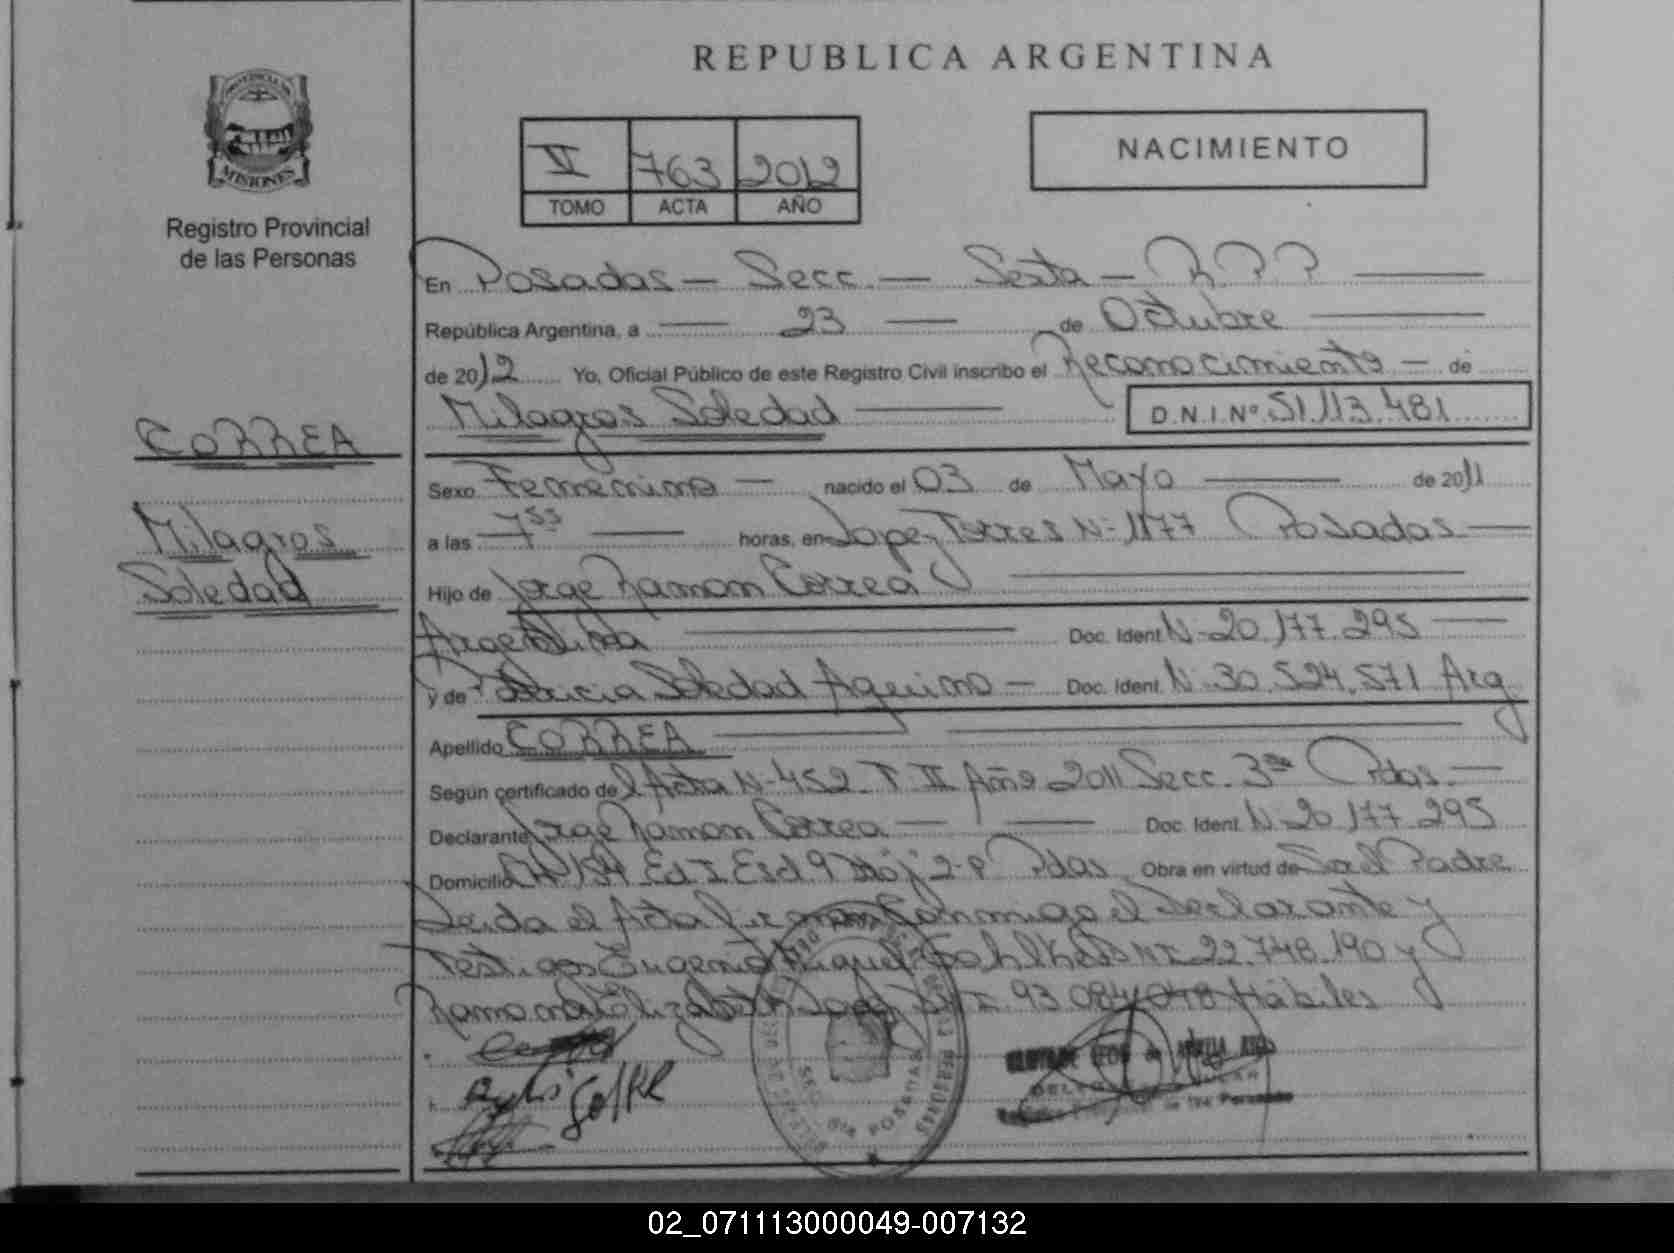 REPUBLICA ARGENTINA
PROVINCIA DE
MISIONES
Registro Provincial
de las Personas
VI 763 2012
TOMO ACTA AÑO
NACIMIENTO
En Posadas - Secc. - Sexta - R.P.P.
República Argentina, a 23 de Octubre
de 2012 Yo, Oficial Público de este Registro Civil inscribo el Reconocimiento - de
Milagros Soledad D.N.I.Nº 51.113.481
CORREA
Milagros
Soledad
Sexo Femenino - nacido el 03 de Mayo de 2011
a las 7⁵⁵ horas, en Lopez Torres Nº 1177 Posadas
Hijo de Jorge Ramon Correa
Argentina Doc. Ident. Nº 20.177.295
y de Patricia Soledad Aquino - Doc. Ident. Nº 30.524.571 Arg
Apellido CORREA
Según certificado de l Acta Nº 452 T II Año 2011 Secc. 3ra Pdas.
Declarante Jorge Ramon Correa Doc. Ident. Nº 20.177.295
Domicilio 154 Ed I Esc 9 2-P Pdas Obra en virtud de Ser el Padre
Leida el Acta Firman Conmigo el Declarante y
Testigos Eugenio Miguel DNI 22.748.190 y
Ramona Elizabeth DNI 93.084.048 Hábiles
POSADAS
de las Personas
02_071113000049-007132